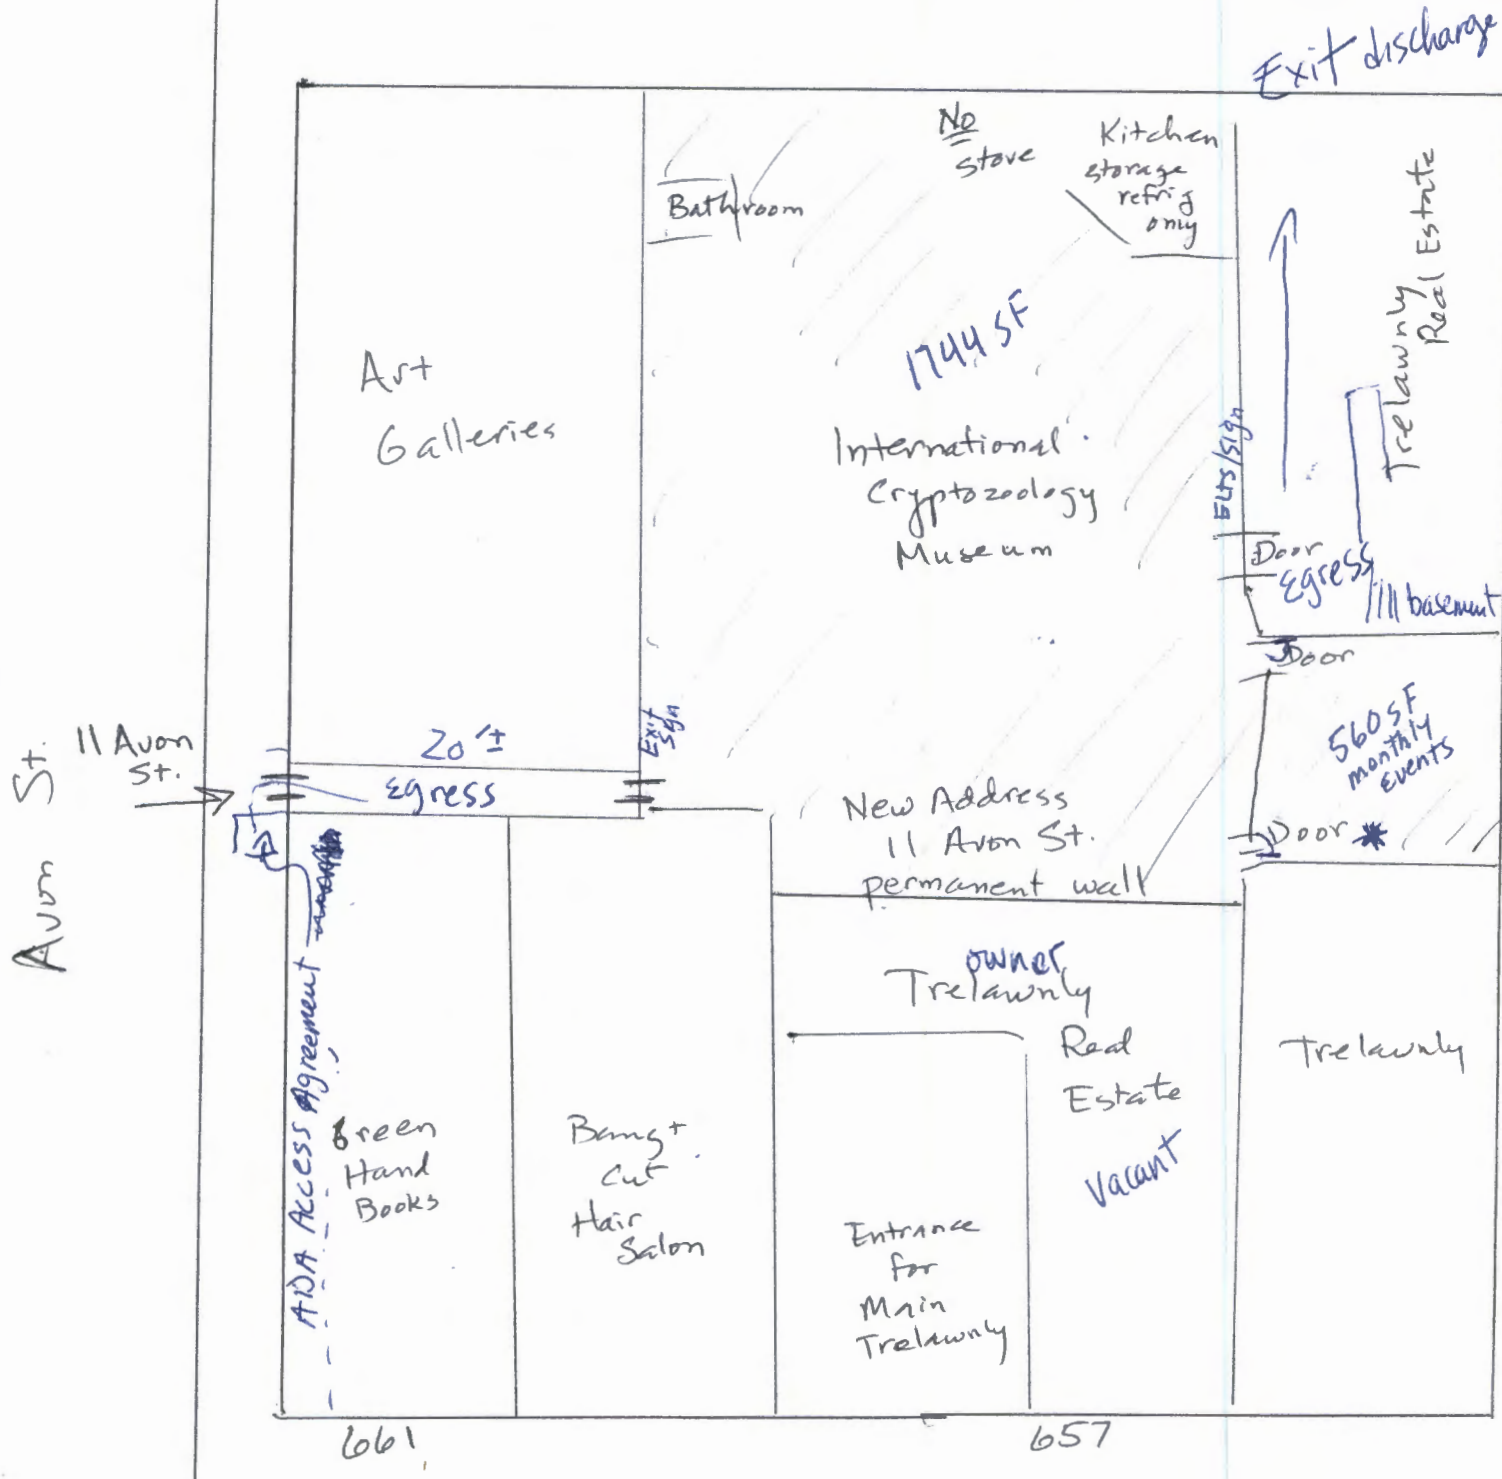 Exit discharge
No
stove
Kitchen
storage
refrig
only
Bathroom
Trelawnly
Real Estate
1744 SF
Art
Galleries
International
Cryptozoology
Museum
ELTS/sign
Door
Egress
basement
Door
560 SF
monthly
Events
Door *
Exit
sign
20'±
Egress
11 Avon
St.
Avon St.
New Address
11 Avon St.
permanent wall
owner
Trelawnly
Real
Estate
Vacant
Trelawnly
ADA Access Agreement
Green
Hand
Books
Bang +
Cut
Hair
Salon
Entrance
for
Main
Trelawnly
661
657